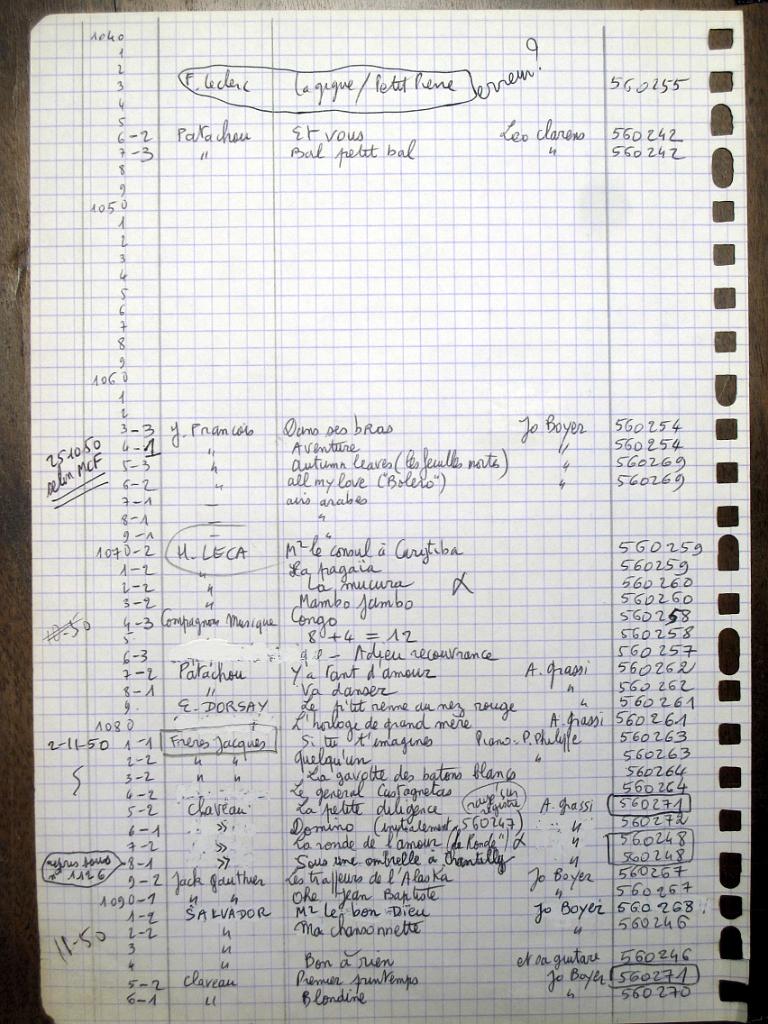 1040
1
2
3 F. Leclerc La gigue / Petit Pierre erreur? 560255
4
5
6-2 Patachou Et vous Leo clarens 560242
7-3 " Bal petit bal " 560242
8
9
1050
1
2
3
4
5
6
7
8
9
1060
1
2
3-3 J. Francois Dans ses bras Jo Boyer 560254
25 10 50 selon MCF
4-1 " Aventure " 560254
5-3 " autumn leaves (les feuilles mortes) " 560269
6-2 " all my love ("Bolero") " 560269
7-1 — airs arabes
8-1 — "
9-1 — "
1070-2 H. LECA Mr le consul à 560259
1-2 " La pagaïa 560259
2-2 " La mucura 560260
3-2 " Mambo Jambo 560260
10-50
4-3 Compagnons Musique Congo 560258
5 8+4 = 12 560258
6-3 Adieu recouvrance 560257
7-2 Patachou Y'a tant d'amour A. grassi 560262
8-1 " Va danser " 560262
9. E. DORSAY Le p'tit renne au nez rouge " 560261
1080 L'horloge de grand mère A. grassi 560261
2-11-50 1-1 Frères Jacques Si tu t'imagines Piano: P. Philippe 560263
2-2 " " Quelqu'un " 560263
3-2 " " La gavotte des batons blancs 560264
4-2 Le general Castagnetas 560264
5-2 Claveau La petite diligence (rayé sur registre) A. grassi 560271
6-1 " Domino (initialement 560247) " 560272
7-2 " La ronde de l'amour (la Ronde") " 560248
8-1 " Sous une ombrelle à Chantilly " 560248
repris sous n° 1126
9-2 Jack Gauthier Les trappeurs de l'Alaska Jo Boyer 560267
1090-1 " " Ohe Jean Baptiste " 560267
1-2 SALVADOR Mr le bon Dieu Jo Boyer 560268
2-2 " Ma chansonnette " 560246
11-50
3 "
4 " Bon à rien et sa guitare 560246
5-2 Claveau Premier printemps Jo Boyer 560271
6-1 " Blondine " 560270